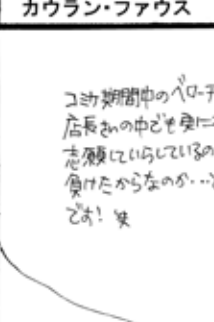 カウラン・ファウス
コミケ期間中のベローチ
店長さんの中でも更に
志願していらしているの
負けたからなのか…
です! 笑